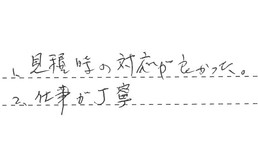 1、見積時の対応が良かった。
2、仕事が丁寧